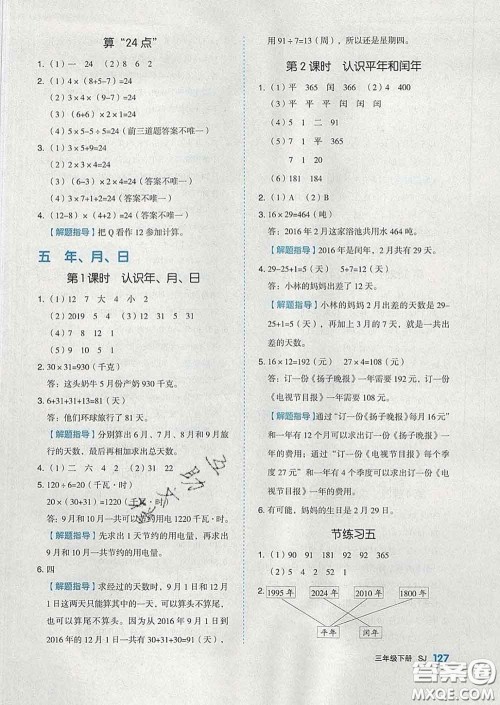 算“24点”
1. (1) 一 24 (2) 8 6 2
2. (1) 4×(8+5-7)=24
(2) 3×4×(9-7)=24
(3) (6+6)×2×1=24
(4) 5×5-5÷5=24 (前三道题答案不唯一)
3. (1) 3×5+9=24
(2) 2×3×4=24 (答案不唯一)
(3) 4×6×1=24 (答案不唯一)
4. (12-8)×(4+2)=24 (答案不唯一)
【解题指导】把Q看作12参加计算。
五 年、月、日
第1课时 认识年、月、日
1. (1) 12 7 大 4 小 2
(2) 2019 5 4 (3) 12 31 5 5
2. (4) 7 8 12 1
(5) 5 4 8 9
3. 30×31=930(千克)
答：这头奶牛5月份产奶930千克。
3. 6+31+31+13=81(天)
答：他们环球旅行了81天。
【解题指导】分别算出6月、7月、8月和9月旅行的天数，最后再相加求出总天数。
4. (1) 二 六 4 2 (2) 二 31
5. 120÷6=20(千瓦·时)
20×(30+31)=1220(千瓦·时)
答：9月和10月一共可以节约1220千瓦·时。
【解题指导】先求出1天节约的用电量，再求出9月和10月一共节约的用电量。
6. 四
【解题指导】求经过的天数时，9月1日和12月1日这两天只能算其中的一天，可以算头不算尾，也可以算尾不算头，因此从2016年9月1日到2016年12月1日一共有30+31+30=91(天)，
用91÷7=13(周)，所以还是星期四。
第2课时 认识平年和闰年
1. (1) 平 365 闰 366 (2) 400 4
(3) 平 平 闰 闰
(4) 5 1 2 91
(5) 7 平 365
9 1 闰 1
(6) 181 184
2. (1) A (2) B
3. 16×29=464(吨)
答：2016年2月这家浴池共用水464吨。
【解题指导】2016年是闰年，2月共有29天。
4. 29-25+1=5(天) 5+7=12(天)
答：小林的妈妈出差了12天。
【解题指导】小林的妈妈2月出差的天数是29-25+1=5(天)，再加上3月的7天，就是一共出差的天数。
5. 16×12=192(元) 27×4=108(元)
答：订一份《扬子晚报》一年需要192元，订一份《电视节目报》一年需要108元。
【解题指导】通过“订一份《扬子晚报》每月16元”和一年有12个月可以求出订一份《扬子晚报》一年的费用；通过“订一份《电视节目报》每季度27元”和一年有4个季度可以求出订一份《电视节目报》一年的费用。
6. 有可能，妈妈的生日是2月29日。
节练习五
1. (1) 90 91 181 92 92 365
(2) 5 7 5 4 51
2. 1995年 2024年 2010年 1800年
平年 闰年
三年级下册 SJ 127
互助文档
答案圈
MXQE.COM